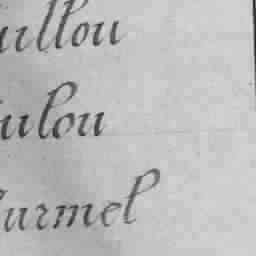 uillou
ulou
urmel